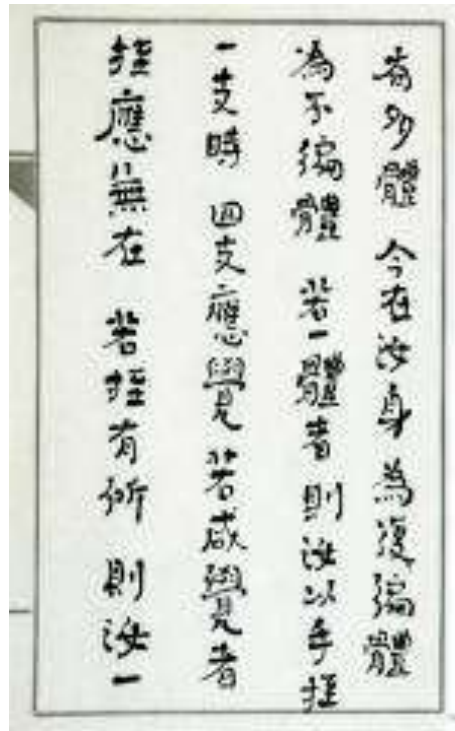 有多體 今在汝身為復徧體
為不徧體 若一體者則汝以手挃
一支時 四支應覺若咸覺者
挃應無在 若挃有所 則汝一